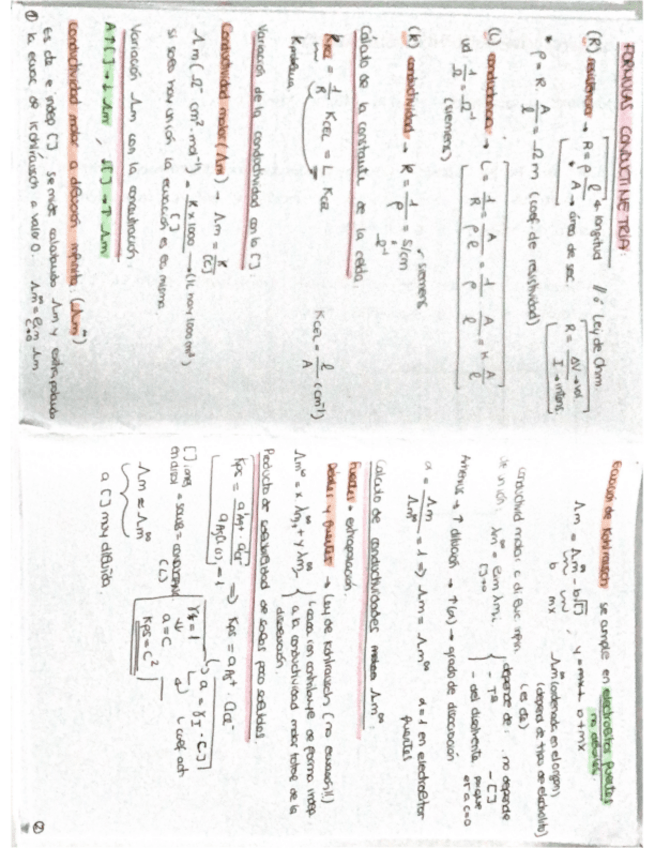 FORMULAS CONDUCTIMETRIA:
(R) resistencia → R = ρ l/A ← longitud // ó Ley de Ohm.
A → área de sec. R = ΔV → vol / I → intens.
ρ = R · A/l = Ω m (coef. de resistividad)
(L) conductancia → L = 1/R = A/ρ l = 1/ρ · A/l = K A/l
ud: 1/Ω = Ω⁻¹ (siemens)
(K) conductividad → K = 1/ρ = S/cm siemens
Cálculo de la constante de la celda.
= 1/R KCEL = L KCEL KCEL = l/A (cm⁻¹)
K problema
Variación de la conductividad con la [ ]:
Conductividad molar (Λm) → Λm = K/[c]
Λm (Ω⁻¹ cm² mol⁻¹) = K x 1000/[ ] → (1L hay 1000 cm³)
si solo hay un ión la ecuación es la misma
Variación Λm con la concentración.
A ↑[ ] → ↓ Λm , ↓[ ] → ↑ Λm
Conductividad molar a dilución infinita: (Λm∞)
es de e indep [ ], se mide calculando Λm y extrapolando
① la ecuac de Kohlrausch a valor 0. Λm∞ = lim Λm c→0
Ecuación de Kohlrausch se cumple en electrolitos fuertes
no débiles
Λm = Λm∞ - b√[ ] , y = b + mx
b mx Λm (ordenada en el origen)
(depend de tipo de electrolito)
conductivid molar a dil de infin.
de un ión, λm = lim λm,i [ ]→0
depende de: no depende
- Tª - [ ]
- del disolvente porque a c=0
Arrhenius → ↑ dilución → ↑(α) → grado de disociación
α = Λm/Λm∞ = 1 => Λm = Λm∞ α=1 en electrolitos fuertes
Cálculo de conductividades molares Λm∞:
Fuertes = extrapolación.
Débiles y fuertes → Ley de Kohlrausch (no ecuación!!)
Λm∞ = x λm,+ + y λm,- { 1 catión contribuye de forma indep
a la conductividad molar total de la
disolución.
Producto de solubilidad de sales poco solubles.
Kps = aAg⁺ · aCl⁻ / aAgCl(s) = 1 => Kps = aAg⁺ · aCl⁻
[ ] iones
γ± = 1 a = γ± · [C]
a = C ↳ coef act
Kps = C²
Λm ≈ Λm∞
a [ ] muy diluida.
②